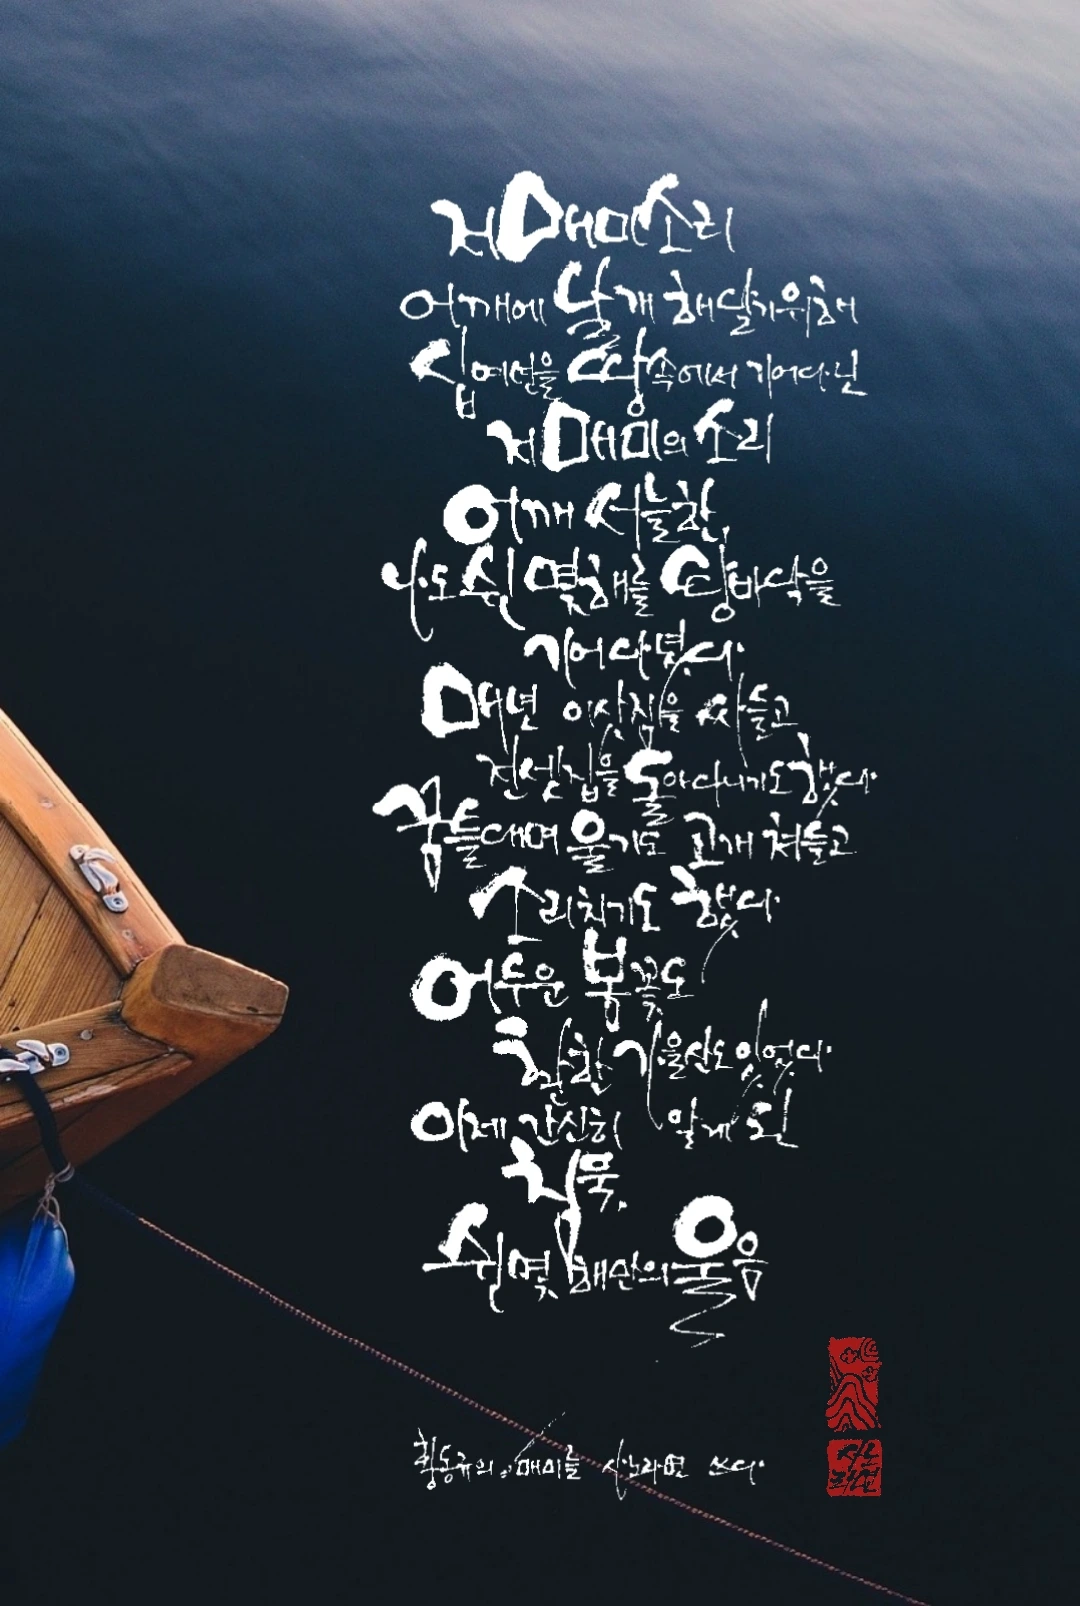 저 매미소리
어깨에 날개 해달기 위해
십여년을 땅속에서 기어다닌
저 매미의 소리
어깨 서늘한,
나도 쉰 몇해를 땅바닥을
기어다녔다.
매년 이삿짐을 싸들고
전셋집을 돌아다니기도 했다.
꿈틀대며 울기도 고개 쳐들고
소리치기도 했다.
어두운 봄꽃도
환한 가을산도 있었다.
이제 간신히 알게 된
침묵,
쉰 몇 해만의 울음
황동규의 매미를 시노라면 쓰다.